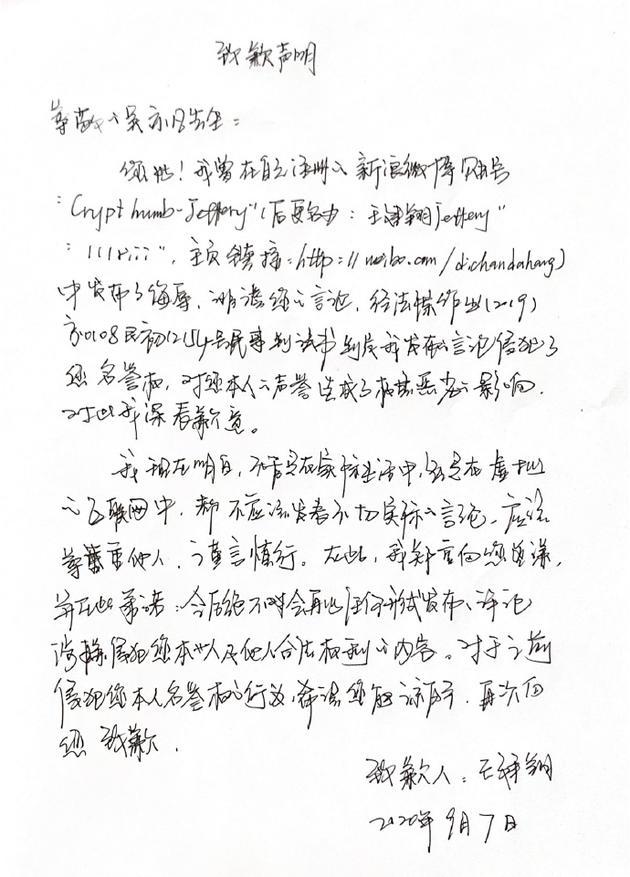 致歉声明
尊敬的吴亦凡先生：
您好！我曾在自己注册的新浪微博账号
"Crypthumb-Jeffery"(后更名为：王泽翔Jeffery"
"111Piii"，主页链接：http://weibo.com/dichandaheng)
中发布了侮辱、诽谤您的言论，经法院作出(2019)
京0108民初12154号民事判决书判决我发布的言论侵犯了
您名誉权，对您本人的声誉造成了极其恶劣的影响，
对此我深表歉意。
我现在明白，不管是在家中生活中，还是在虚拟
的互联网中，都不应该发表不切实际的言论，应该
尊重他人，谨言慎行。在此，我郑重向您道歉，
并在此承诺：今后绝不会再以任何形式发布、评论
侵犯您本人以及他人合法权利的内容。对于之前
侵犯您本人名誉权的行为，希望您能谅解，再次向
您致歉。
致歉人：王泽翔
2020年9月7日